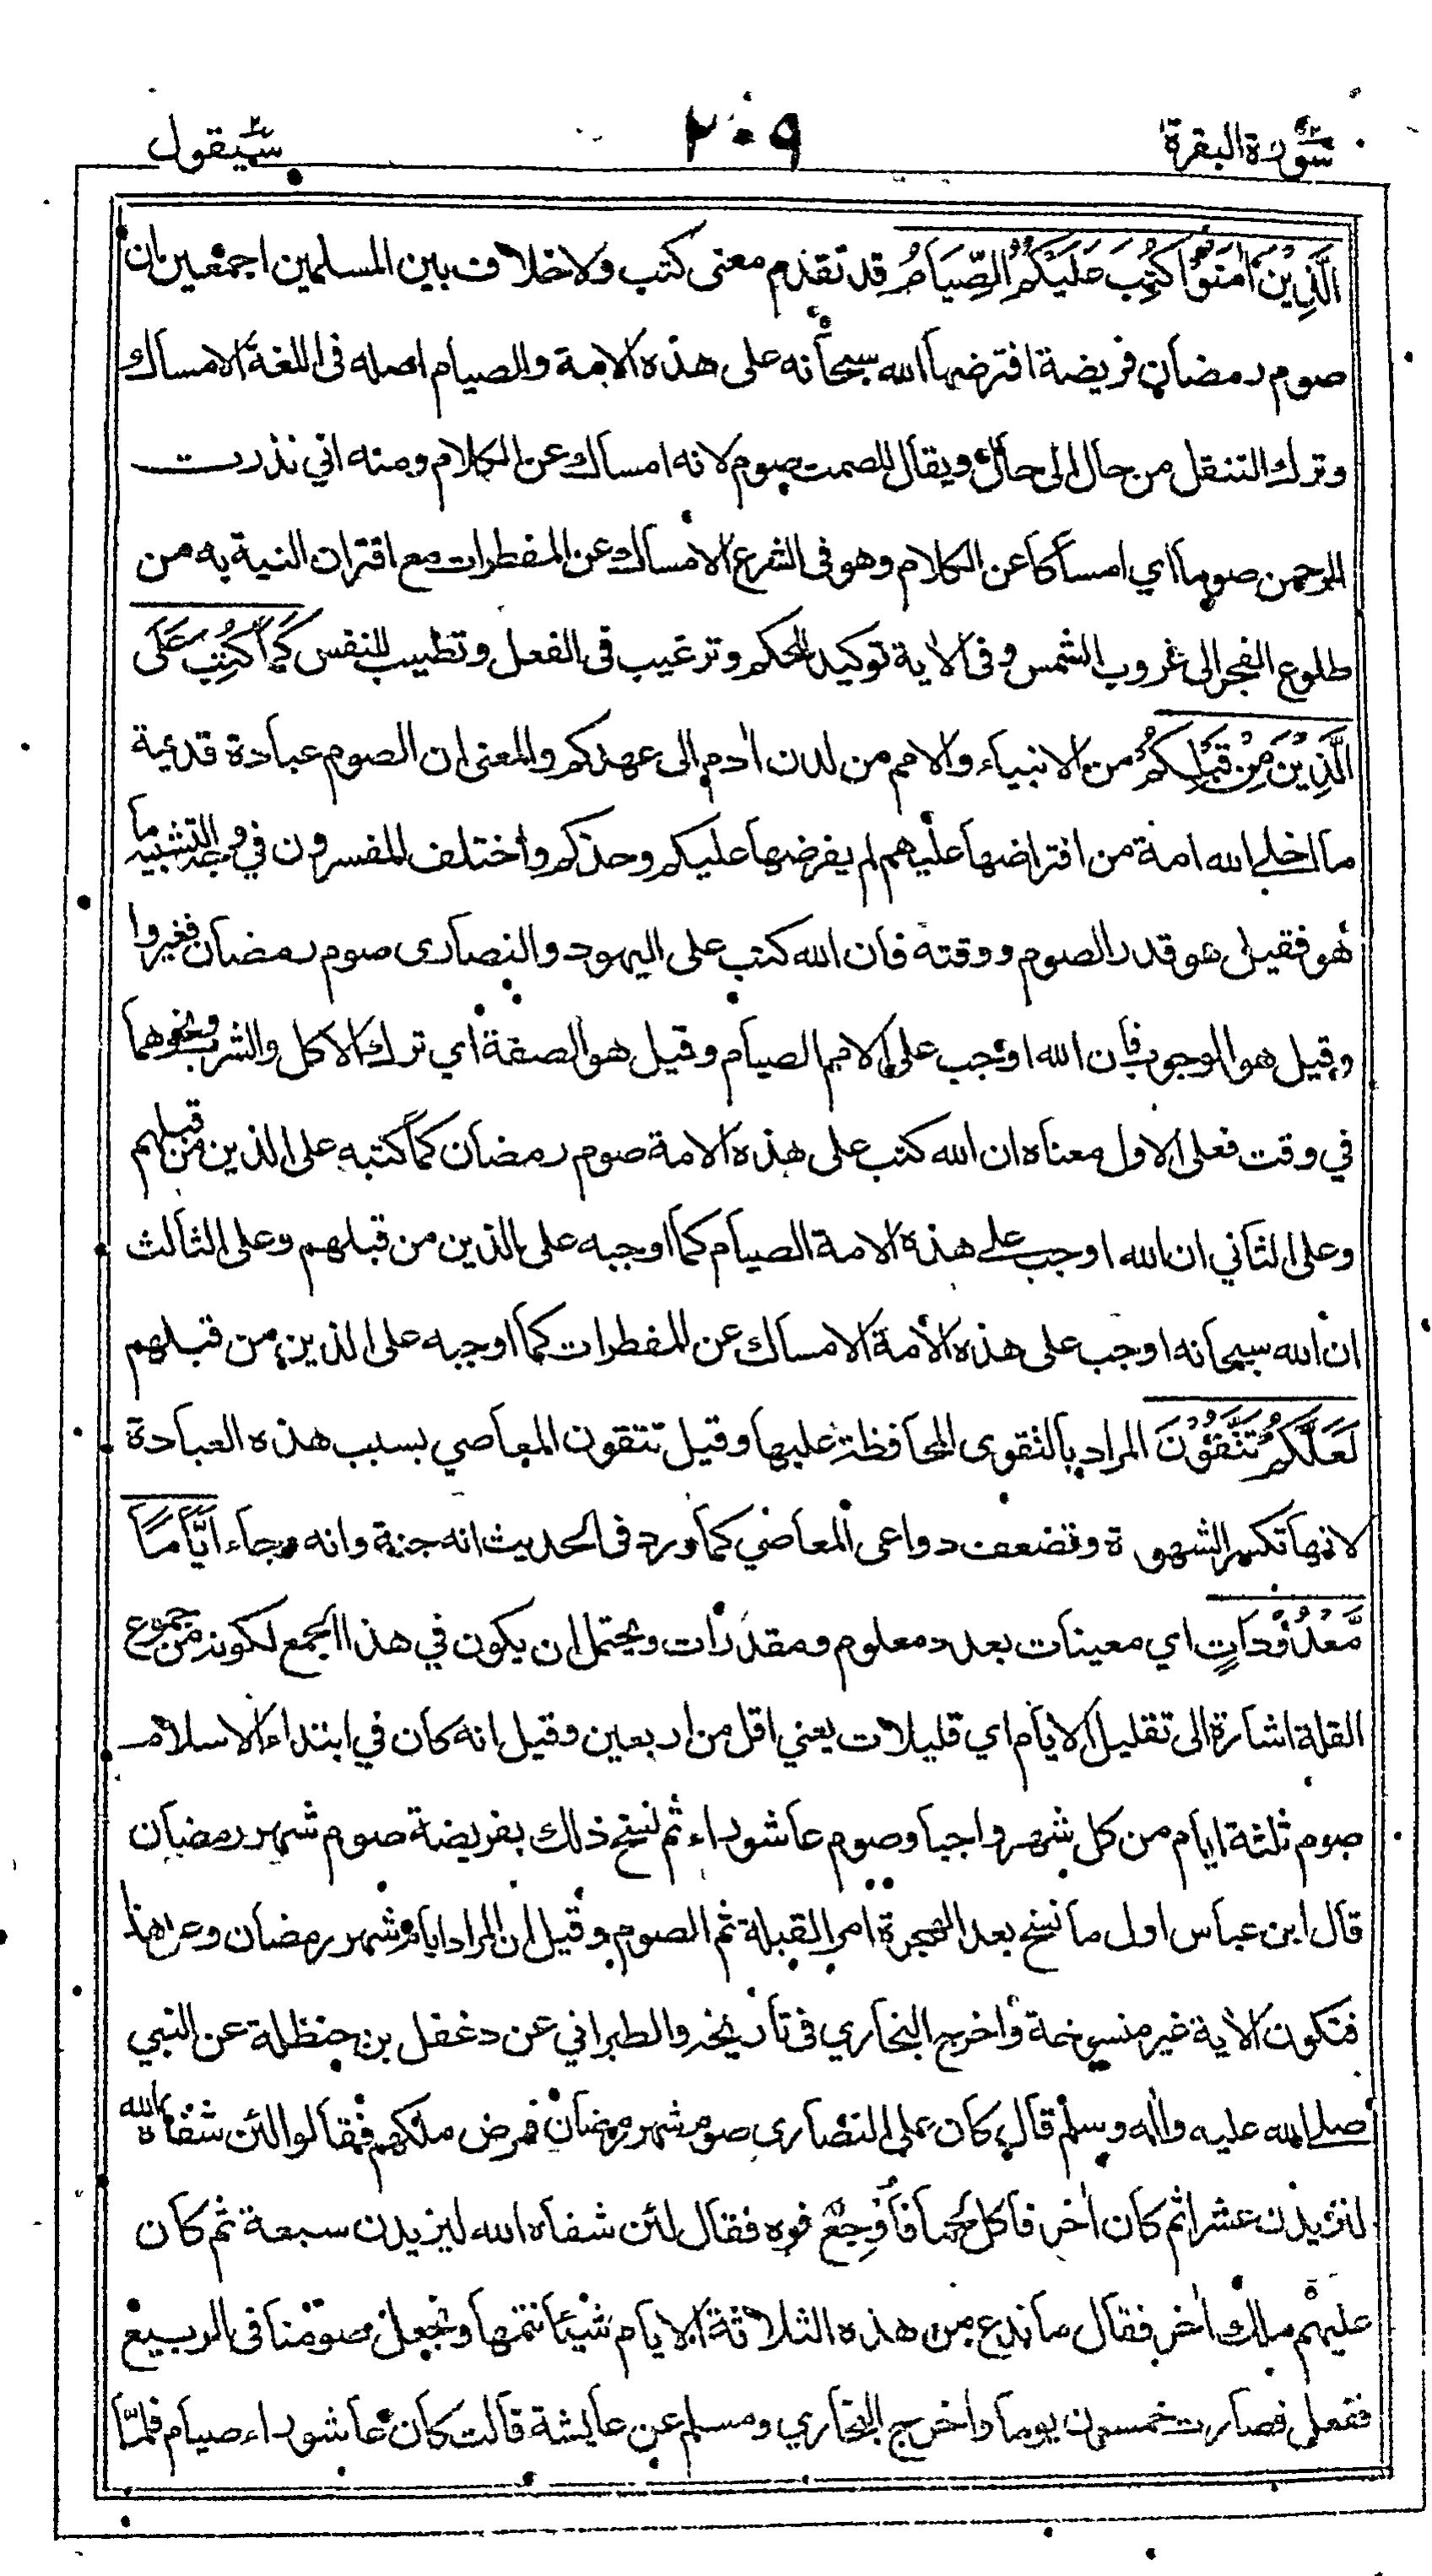 سورة البقرة
٢٠٩
سيقول
الَّذِيْنَ اٰمَنُوْا كُتِبَ عَلَيْكُمُ الصِّيَامُ قد تقدم معنى كتب ولا خلاف بين المسلمين اجمعين ان
صوم رمضان فريضة افترضها الله سبحانه على هذه الامة والصيام اصله فى اللغة الامساك
وترك التنقل من حال الى حال ويقال للصمت صوم لانه امساك عن الكلام ومنه اني نذرت
للرحمن صوما اي امساكا عن الكلام وهو فى الشرع الامساك عن المفطرات مع اقتران النية به من
طلوع الفجر الى غروب الشمس وفى الاية توكيد للحكم وترغيب فى الفعل وتطييب للنفس كَمَا كُتِبَ عَلَى
الَّذِيْنَ مِنْ قَبْلِكُمْ من الانبياء والامم من لدن اٰدم الى عهدكم والمعنى ان الصوم عبادة قديمة
ما اخلى الله امة من افتراضها عليهم لم يفرضها عليكم وحدكم واختلف المفسرون في وجه التشبيه ما
هو فقيل هو قدر الصوم ووقته فان الله كتب على اليهود والنصارى صوم رمضان فغيروا
وقيل هو الوجوب فان الله اوجب على الامم الصيام وقيل هو الصفة اي ترك الاكل والشرب ونحوهما
في وقت فعلى الاول معناه ان الله كتب على هذه الامة صوم رمضان كما كتبه على الذين من قبلهم
وعلى الثاني ان الله اوجب على هذه الامة الصيام كما اوجبه على الذين من قبلهم وعلى الثالث
ان الله سبحانه اوجب على هذه الأمة الامساك عن المفطرات كما اوجبه على الذين من قبلهم
لَعَلَّكُمْ تَتَّقُوْنَ المراد بالتقوى المحافظة عليها وقيل تتقون المعاصي بسبب هذه العبادة
لانها تكسر الشهوة وتضعف دواعى المعاصي كما ورد فى الحديث انه جنة وانه وجاء اَيَّامًا
مَّعْدُوْدَاتٍ اي معينات بعدد معلوم ومقدرات ويحتمل ان يكون في هذا الجمع لكونه من جموع
القلة اشارة الى تقليل الايام اي قليلات يعني اقل من اربعين وقيل انه كان في ابتداء الاسلام
صوم ثلثة ايام من كل شهر واجبا وصوم عاشوراء ثم نسخ ذلك بفريضة صوم شهر رمضان
قال ابن عباس اول ما نسخ بعد الهجرة امر القبلة ثم الصوم وقيل ان المراد ايام شهر رمضان وعلى هذا
فتكون الاية غير منسوخة واخرج البخاري فى تاريخه والطبراني عن دغفل بن حنظلة عن النبي
صلى الله عليه واٰله وسلم قال كان على النصارى صوم شهر رمضان فمرض ملكهم فقالوا لئن شفاه الله
لنزيدن عشرا ثم كان اٰخر فاكل لحما فأوجع فوه فقال لئن شفاه الله ليزيدن سبعة ثم كان
عليهم ملك اٰخر فقال ما ندع من هذه الثلاثة الايام شيئا نتمها ونجعل صومنا فى الربيع
ففعل فصارت خمسين يوما واخرج البخاري ومسلم عن عايشة قالت كان عاشوراء صيام فلمّا